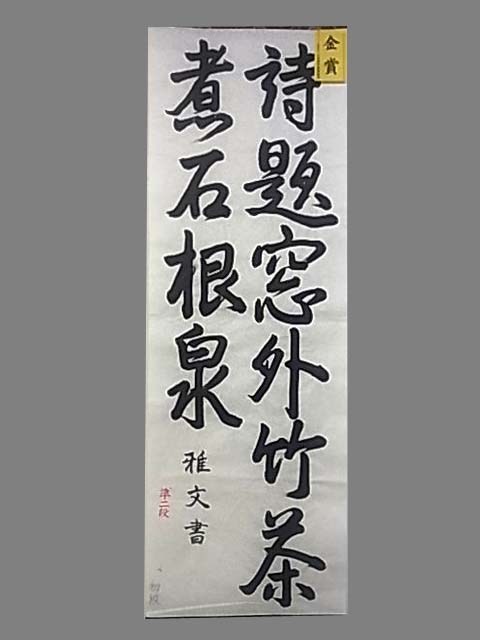 金賞
詩題窓外竹茶
煮石根泉
雅文書
準二段
初段